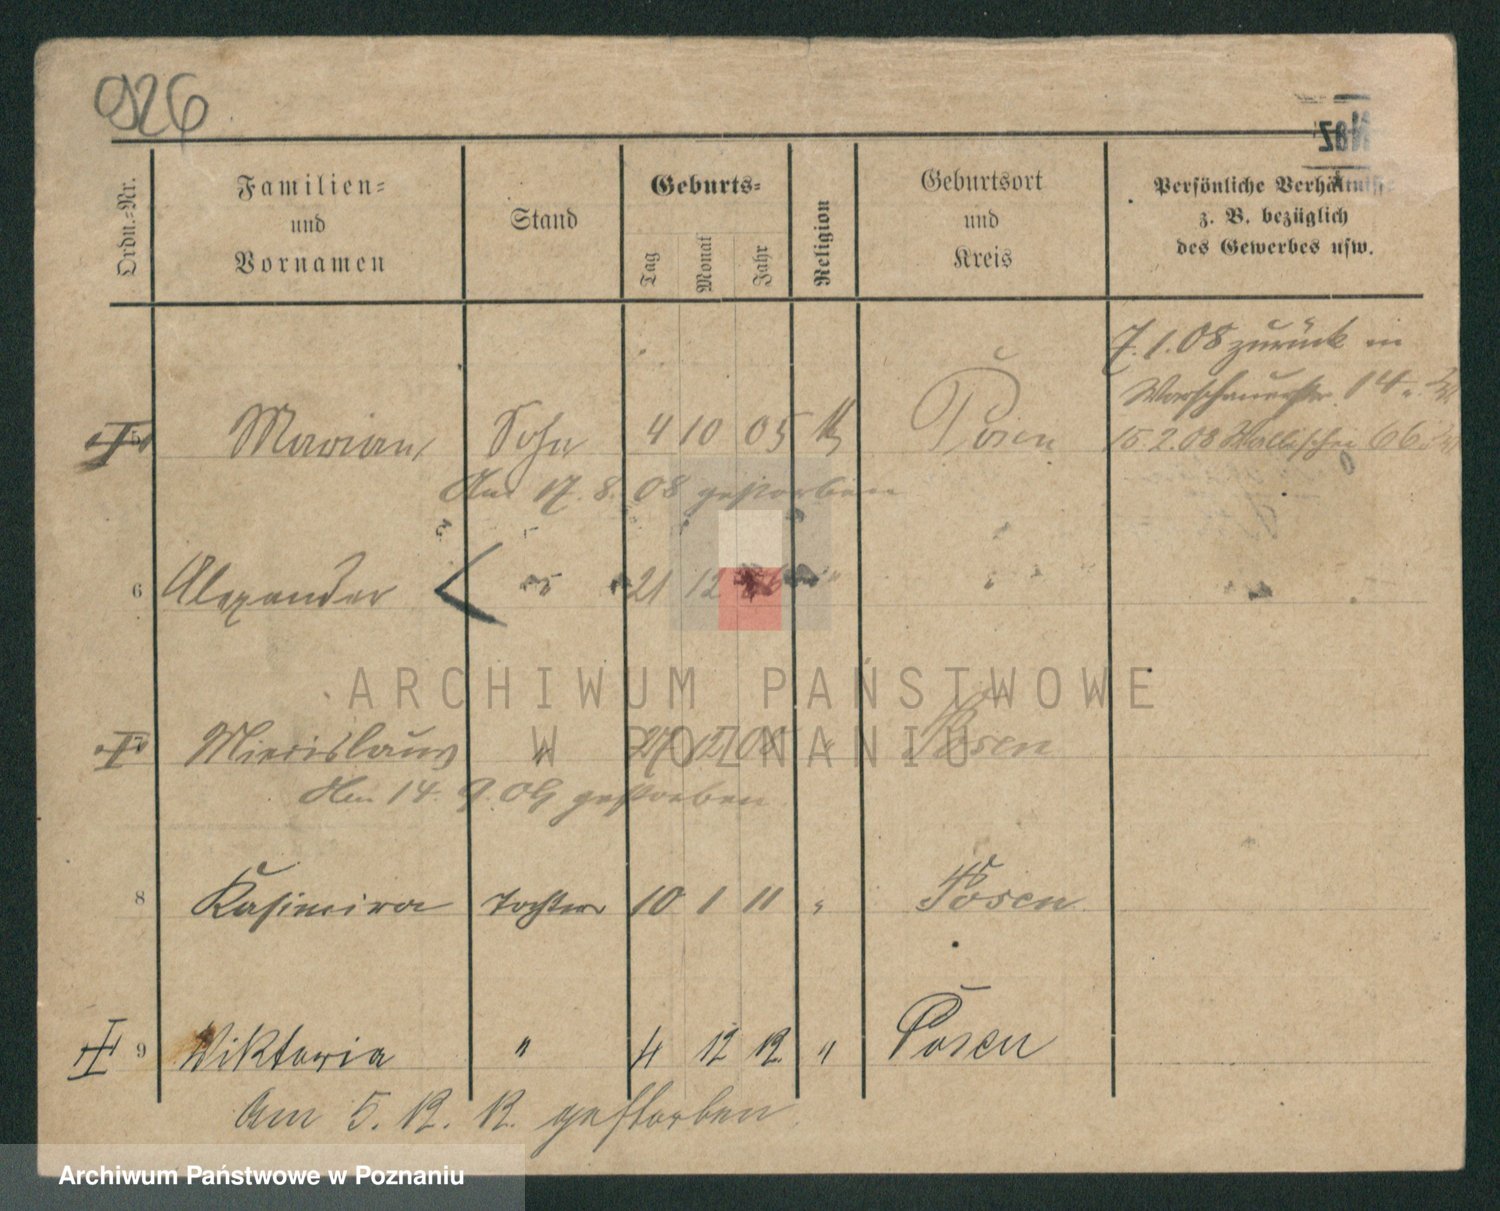 926
Ordn.-Nr.
Familien-
und
Vornamen
Stand
Geburts-
Tag
Monat
Jahr
Religion
Geburtsort
und
Kreis
Persönliche Verhältniss
z. B. bezüglich
des Gewerbes usw.
7.1.08 zurück in
Warschauerstr. 14
5 Marian, Sohn 4 10 05 k Posen 15.2.08 Wallischei 66
Am 17. 8. 08 gestorben
6 Alexander " 21 12 06 " "
7 Miecislaus " 27 12 08 " Posen
Am 14. 9. 09 gestorben
8 Kasimira Tochter 10 1 11 " Posen
9 Wiktoria " 4 12 12. " Posen
Am 5. 12. 12. gestorben.
ARCHIWUM PAŃSTWOWE
W POZNANIU
Archiwum Państwowe w Poznaniu